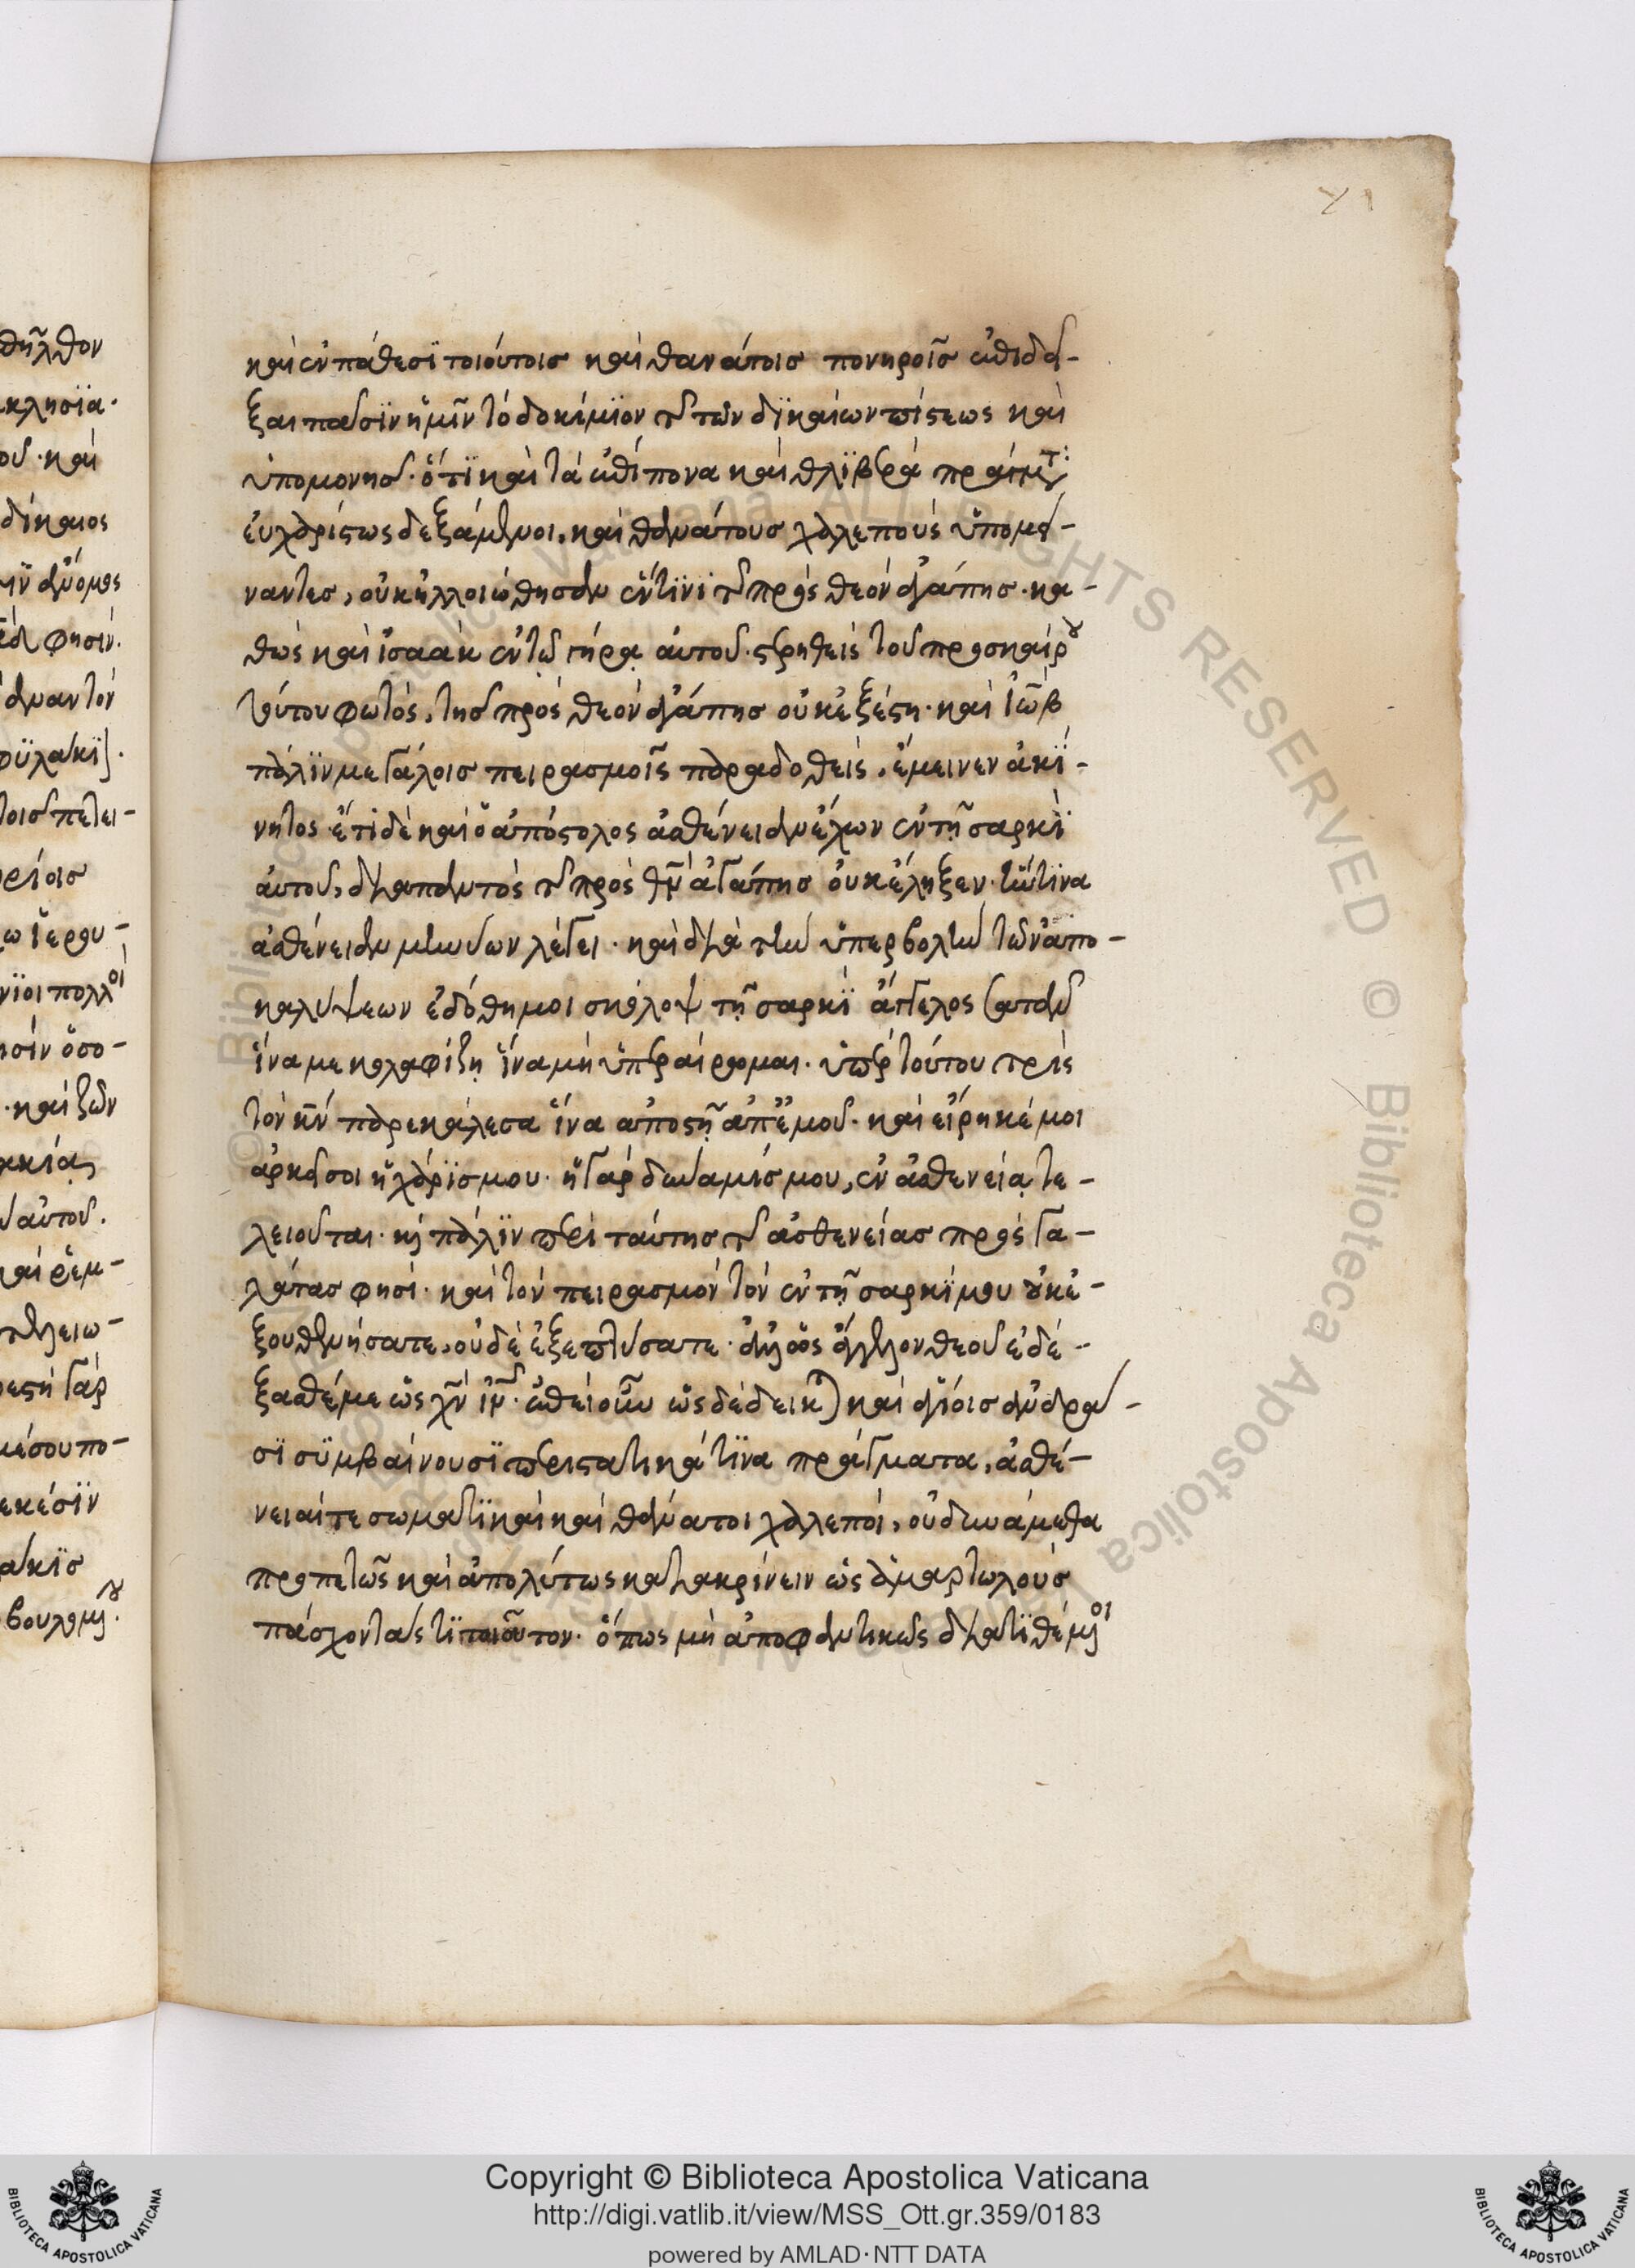 και ἐν πάθεσϊ τοιούτοις και θανάτοις πονηροῖς ἐπιδεί-
ξαι πᾶσϊν ἡμῖν τὸ δοκίμϊον τῆς τῶν δϊκαίων πίστεως και
ὑπομονῆς· ὅτϊ και τὰ ἐπίπονα και θλϊβερὰ πράγματ:
εὐχαρίστως δεξάμενοι, και θανάτους χαλεποὺς ὑπομεί-
ναντες, οὐκ ἠλλοιώθησαν ἔν τϊνϊ τῆς πρὸς θεὸν ἀγάπης· κα-
θὼς και ἰσαὰκ ἐν τῷ γήρᾳ αὐτοῦ. στερηθεὶς τοῦ προσκαίρου
τούτου φωτὸς, τῆς πρὸς θεὸν ἀγάπης οὐκ ἐξέστη· και ἰὼβ
πάλϊν μεγάλοις πειρασμοῖς παραδοθεὶς, ἔμεινεν ἀκί-
νητος· ἔτι δὲ και ὁ ἀπόστολος ἀσθένειαν ἔχων ἐν τῇ σαρκὶ
αὐτοῦ, διαπαντὸς τῆς πρὸς θν ἀγάπης οὐκ ἔληξεν. τίνα
ἀσθένειαν μηνύων λέγει· και διὰ τὴν ὑπερβολὴν τῶν ἀπο-
καλύψεων ἐδόθη μοι σκόλοψ τῇ σαρκὶ ἄγγελος σατὰν
ἵνα με κολαφίζῃ ἵνα μὴ ὑπεραίρομαι. ὑπὲρ τούτου τρὶς
τὸν κν παρεκάλεσα ἵνα ἀποστῇ ἀπ' ἐμοῦ. και εἴρηκέ μοι
ἀρκεῖ σοι ἡ χάρϊς μου. ἡ γὰρ δύναμίς μου, ἐν ἀσθενείᾳ τε-
λειοῦται. κὶ πάλϊν περὶ ταύτης τῆς ἀσθενείας πρὸς γα-
λάτας φησί. και τὸν πειρασμὸν τὸν ἐν τῇ σαρκί μου οὐκ ἐ-
ξουθενήσατε, οὐδὲ ἐξεπτύσατε. ἀλλ' ὡς ἄγγελον θεοῦ ἐδέ-
ξασθέ με ὡς χν ιν. ἐπεὶ οὖν ὡς δέδεικται και ἁγίοις ἀνδρά-
σϊ συμβαίνουσϊ περιστατικά τϊνα πράγματα, ἀσθέ-
νειαί τε σωματϊκαὶ και θάνατοι χαλεποί, οὐ δυνάμεθα
προπετῶς και ἀπολύτως κατακρίνειν ὡς ἁμαρτωλοὺς
πάσχοντάς τϊ τοιοῦτον. ὅπως μὴ ἀποφαντικῶς διατϊθέμενοι
Copyright © Biblioteca Apostolica Vaticana
http://digi.vatlib.it/view/MSS_Ott.gr.359/0183
powered by AMLAD·NTT DATA
BIBLIOTECA APOSTOLICA VATICANA
BIBLIOTECA APOSTOLICA VATICANA